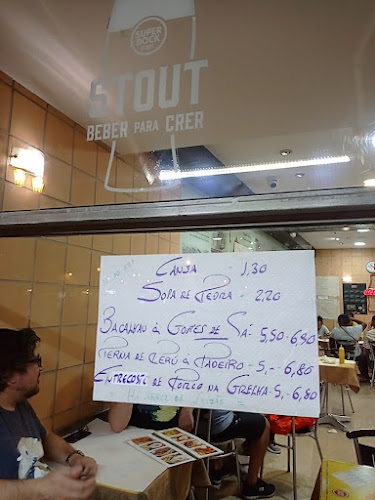 SUPER BOCK
STOUT
BEBER PARA CRER
CANJA - 1,30
SOPA DE PEDRA - 2,20
BACALHAU À GOMES DE SÁ - 5,50 - 6,90
PERNA DE PERÚ À PADEIRO - 5,- - 6,80
ENTRECOSTO DE PORCO NA GRELHA - 5,- 6,80